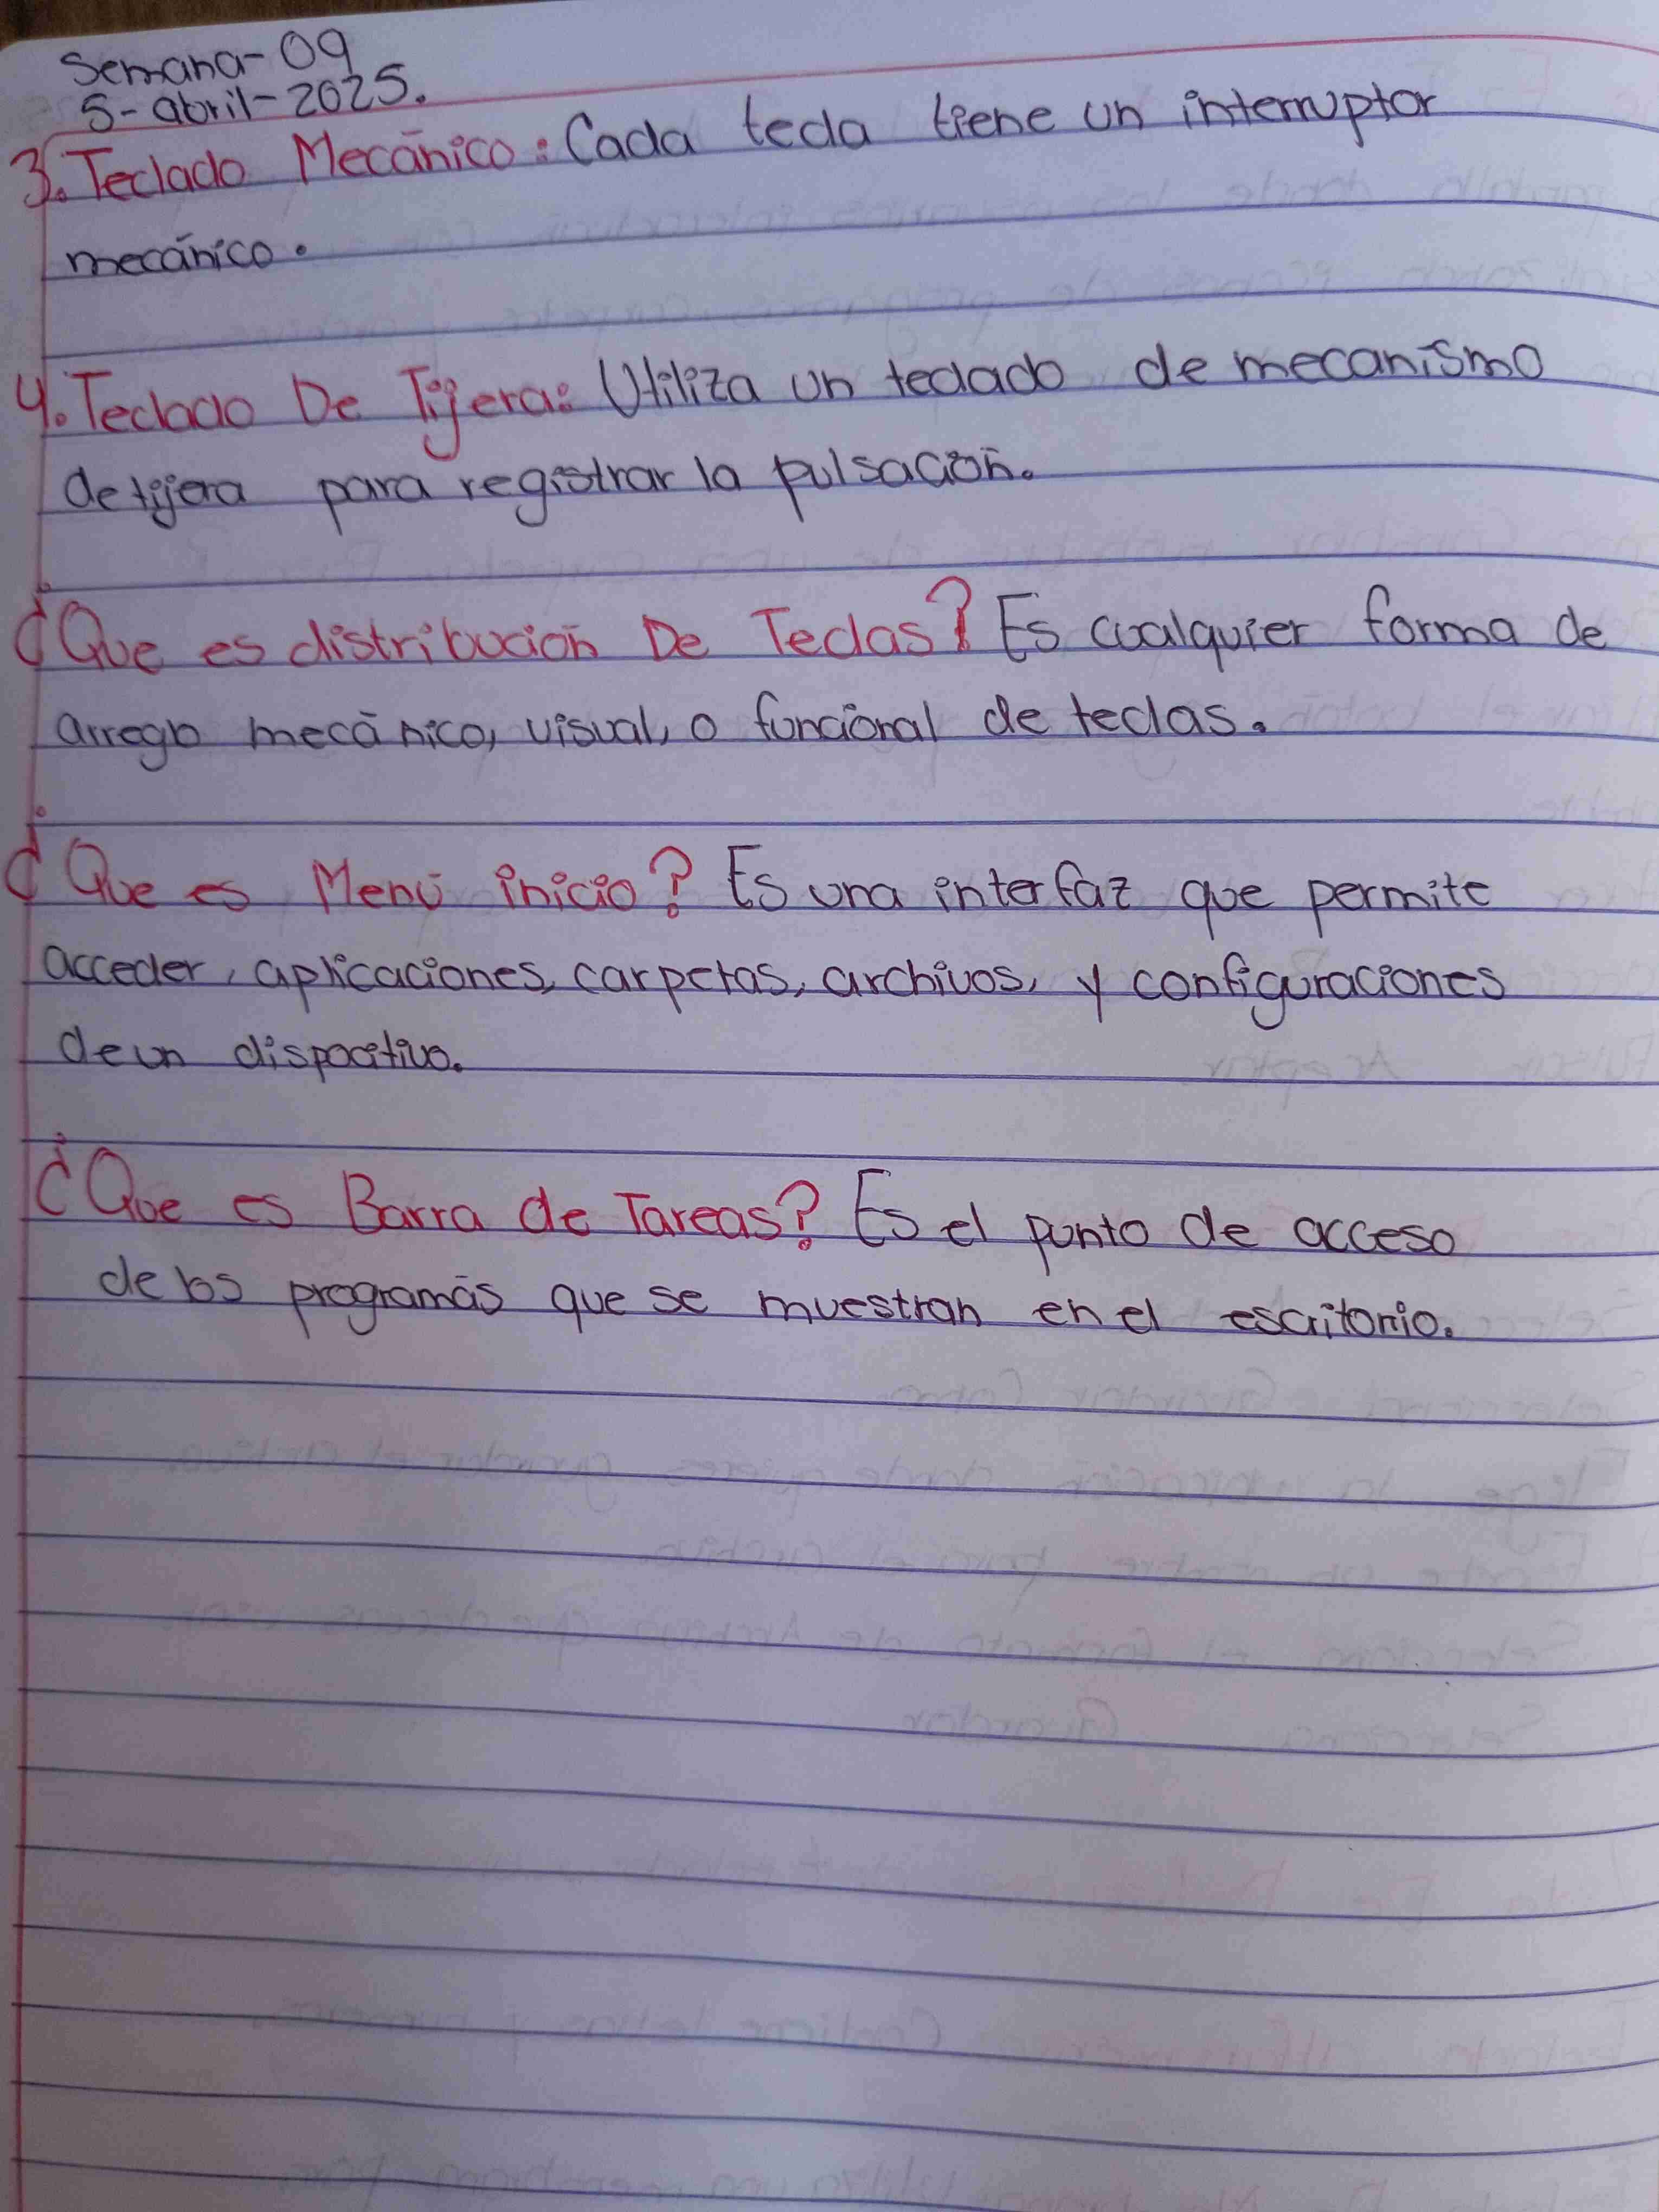 Semana-09
5-abril-2025.
3. Teclado Mecánico: Cada tecla tiene un interruptor
mecánico.
4. Teclado De Tijera: Utiliza un teclado de mecanismo
de tijera para registrar la pulsación.
¿Que es distribución De Teclas? Es cualquier forma de
arreglo mecánico, visual, o funcional de teclas.
¿Que es Menú inicio? Es una interfaz que permite
acceder, aplicaciones, carpetas, archivos, y configuraciones
de un dispocitivo.
¿Que es Barra de Tareas? Es el punto de acceso
de los programas que se muestran en el escritorio.